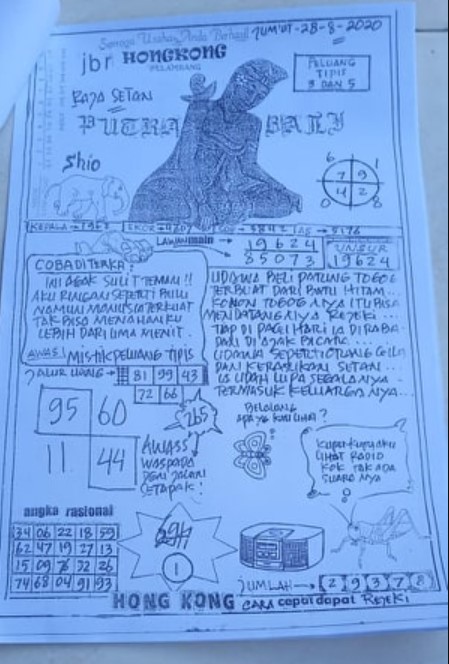 Semoga Usaha Anda Berhasil JUM'AT-28-8-2020
jbr HONGKONG
PALEMBANG
RAJA SETAN
PUTRA BALI
PELUANG
TIPIS
3 DAN 5
Shio
6 1
7 9
4 2
0 8
KEPALA → EKOR → COP → AS →
LAWAN main → 19624
85073
UNSUR
19624
COBA DITERKA:
INI AGAK SULIT TEMAN!!
AKU RINGAN SEPERTI BULU
NAMUN MANUSIA TERKUAT
TAK BISA MENAHANKU
LEBIH DARI LIMA MENIT.
UDAWA BELI PATUNG TOGOG
TERBUAT DARI BATU HITAM...
KONON TOGOG NYA ITU BISA
MENDATANGNYA REJEKI...
TIAP DI PAGI HARI IA DIRABA-
DAN DI AJAK BICARA...
UDAWA SEPERTI ORANG GILA
DAN KERASUKAN SETAN...
IA UDAH LUPA SEGALANYA
TERMASUK KELUARGA NYA...
AWAS! MISTIK PELUANG TIPIS
JALUR UANG → 81 99 43
72 66
95 60
11 44
265
AWASS
WASPADA
DEMI JALAN
SETAPAK!
BELALANG
APA YG KAU LIHAT?
KUPU-KUPU AKU
LIHAT RADIO
KOK TAK ADA
SUARA NYA
angka rasional
34 06 22 18 59
62 47 19 27 13
15 09 76 32 26
74 68 04 91 93
1
JUMLAH → 2 9 3 7 8
HONG KONG CARA cepat dapat REJEKI